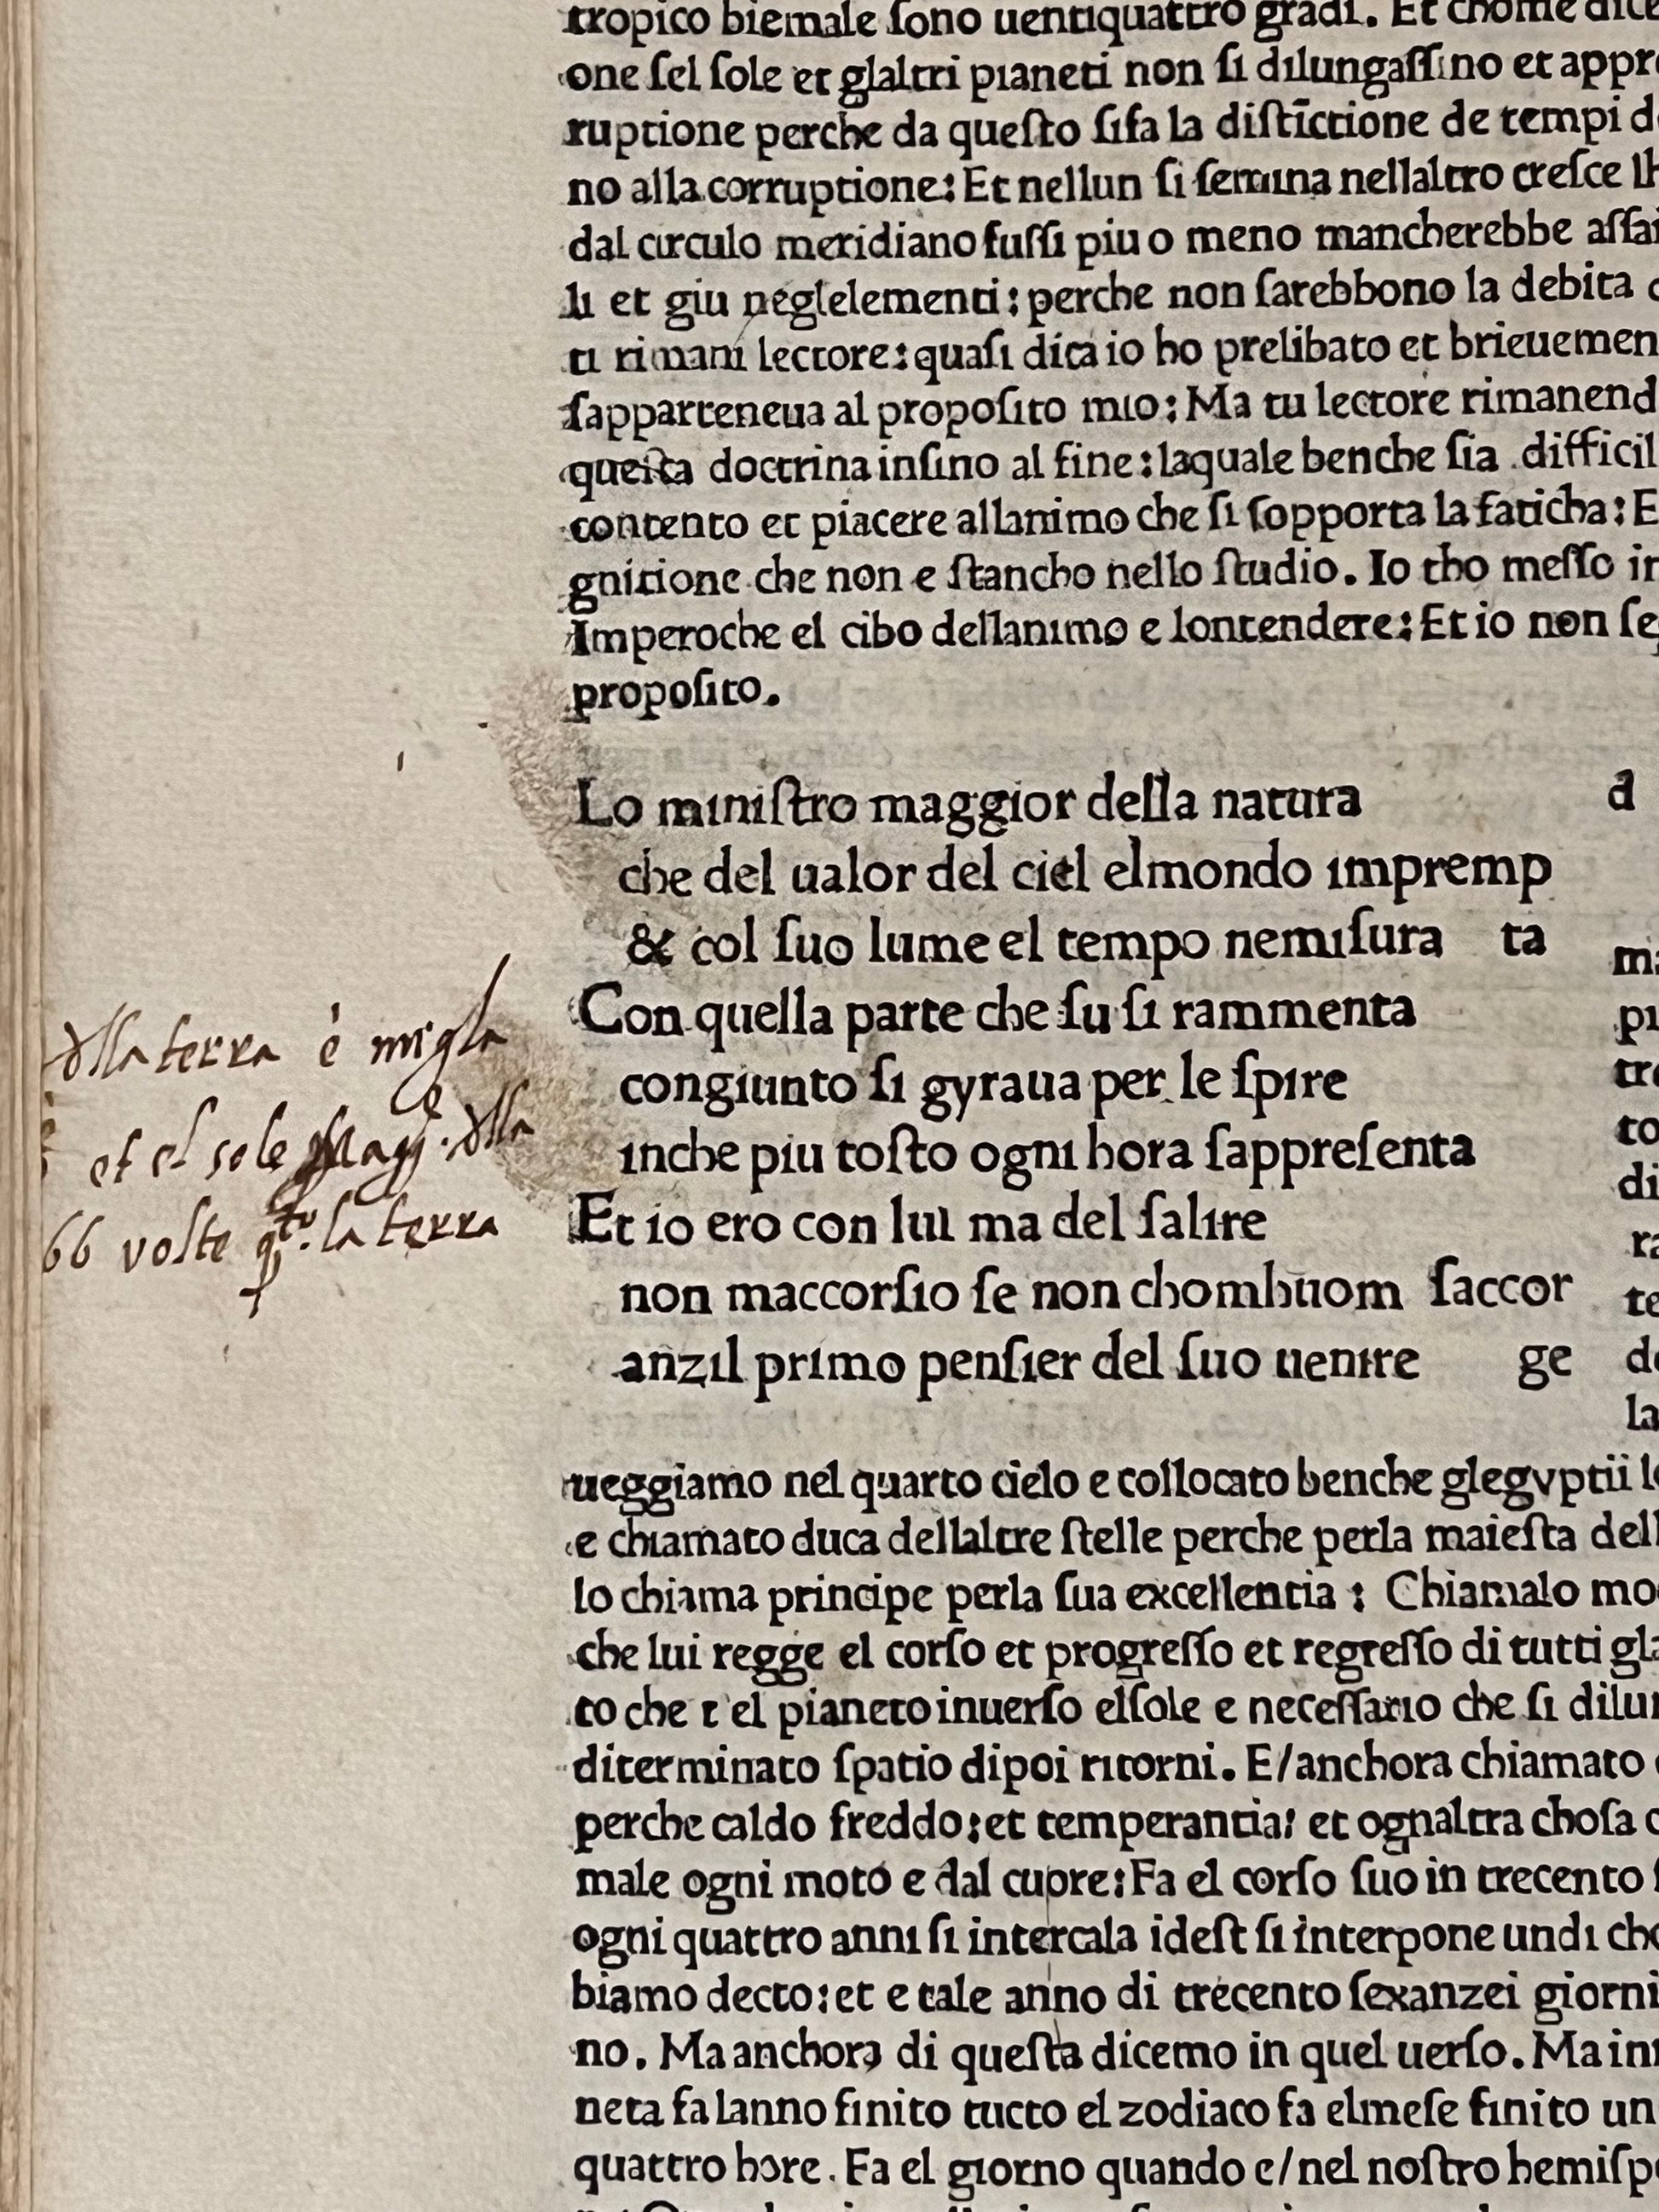 tropico biemale sono uentiquattro gradi. Et chome dice
one sel sole et glaltri pianeti non si dilungassino et appr
ruptione perche da questo sifa la distīctione de tempi d
no alla corruptione: Et nellun si semina nellaltro cresce lh
dal circulo meridiano fussi piu o meno mancherebbe assai
li et giu neglelementi: perche non sarebbono la debita
ti rimani lectore: quasi dica io ho prelibato et brieuemen
sapparteneua al proposito mio: Ma tu lectore rimanend
questa doctrina insino al fine: laquale benche sia difficil
contento et piacere allanimo che si sopporta la faticha: E
gnitione che non e stancho nello studio. Io tho messo in
Imperoche el cibo dellanimo e lontendere: Et io non se
proposito.
Lo ministro maggior della natura
che del ualor del ciel elmondo impremp
& col suo lume el tempo nemisura ta
Con quella parte che su si rammenta
congiunto si gyraua per le spire
inche piu tosto ogni hora sappresenta
Et io ero con lui ma del salire
non maccorsio se non chomhuom saccor
anzil primo pensier del suo uenire ge
d
ma
pi
tr
to
di
ra
te
de
la
dlla terra è
et el sole dlla
66 volte la terra
ueggiamo nel quarto cielo e collocato benche glegyptii l
e chiamato duca dellaltre stelle perche perla maiesta dell
lo chiama principe perla sua excellentia: Chiamalo mo
che lui regge el corso et progresso et regresso di tutti gla
to che t el pianeto inuerso elsole e necessario che si dilu
diterminato spatio dipoi ritorni. E/anchora chiamato
perche caldo freddo: et temperantia: et ognaltra chosa
male ogni moto e dal cuore: Fa el corso suo in trecento
ogni quattro anni si intercala idest si interpone undi cho
biamo decto: et e tale anno di trecento sexanzei giorni
no. Ma anchora di questa dicemo in quel uerso. Ma in
neta fa lanno finito tucto el zodiaco fa elmese finito un
quattro hore. Fa el giorno quando e/nel nostro hemisp